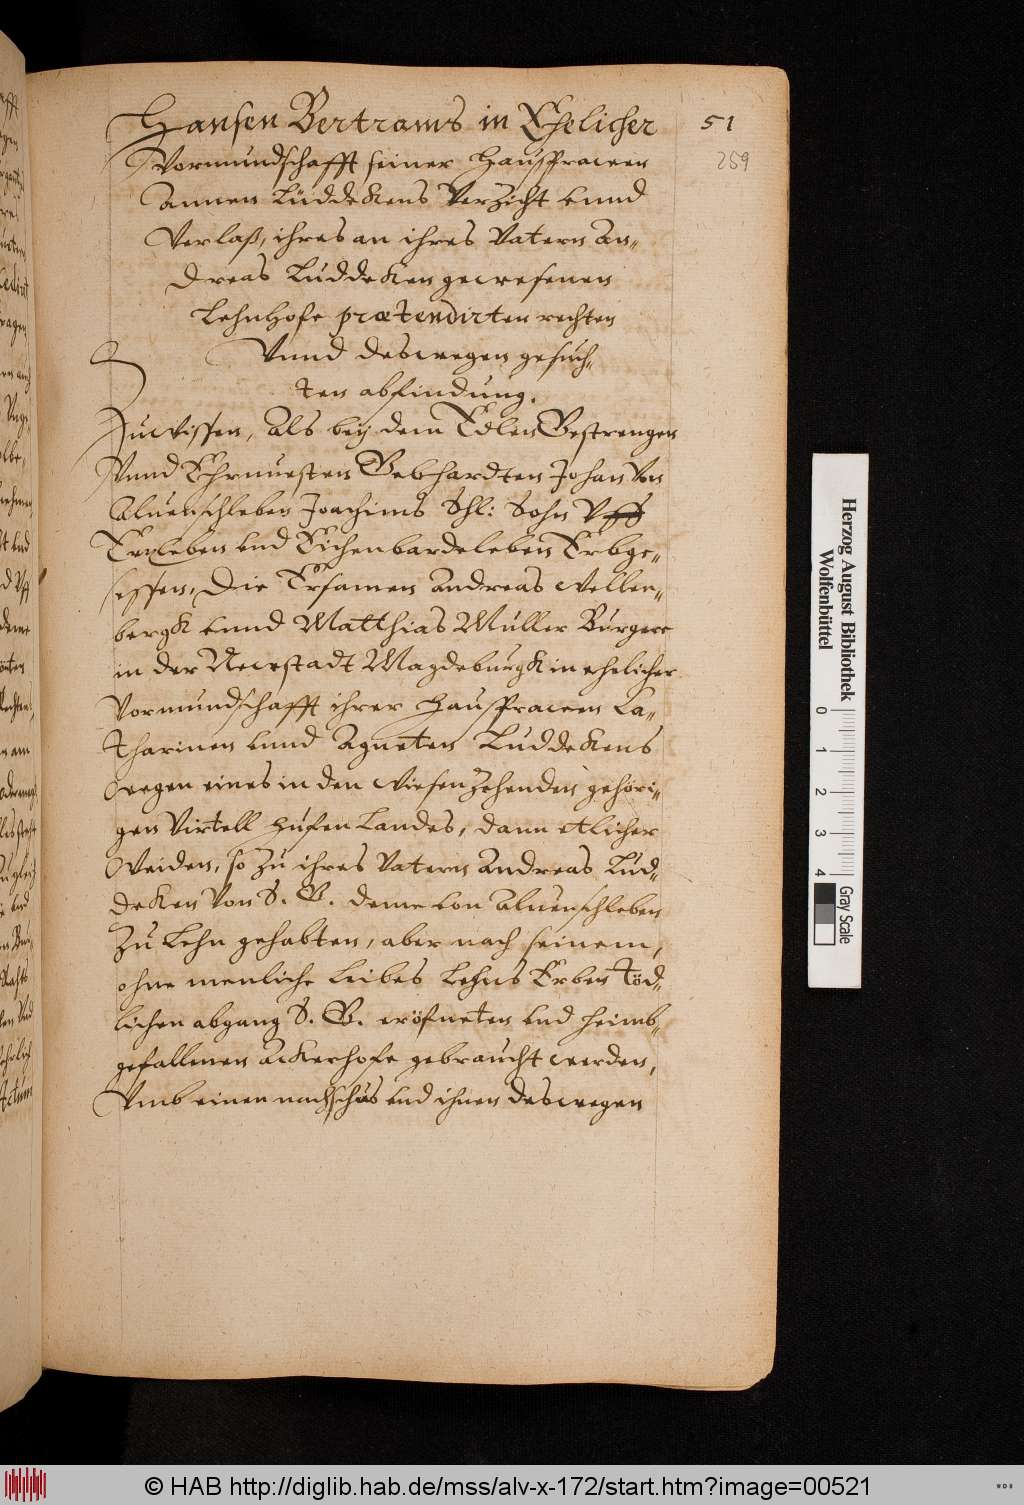 Hansen Bertrams in Ehelicher 51
Vormundschafft seiner Hausfrawen 259
Annen Lüddekens Verzicht vnnd
Verlaß, ihres an ihres Vatern An-
dreas Lüddeken gewesenen
Lehnhofe prætendirten rechten
Vnnd deswegen gesuch-
ten abfindung.
Zuwissen, Als bey dem Edlen Gestrengen
Vnnd Ehrnuesten Gebhardten Johan Von
Aluenschleben Joachims Shl: Sohn Vff
Erxleben vnd Eichenbardeleben Erbge-
sessen, Die Ersamen Andreas Wellen-
bergk vnnd Matthias Müller Bürgere
in der Newstadt Magdeburgk in ehelicher
Vormundschafft ihrer Hausfrawen Ca-
tharinen vnnd Agneten Lüddekens
Wegen eines in den Wiesenzehenden gehöri-
gen Virtell Hufen Landes, dann etlicher
Weiden, so zu ihres Vatern Andreas Lüd-
deken Von S. G. deme von Aluenschleben
zu Lehn gehabten, aber nach seinem,
ohne menliche Leibes Lehns Erben töd-
lichen abgang S. G. eröfneten vnd heimb-
gefallenen Ackerhofe gebraucht werden,
Vmb einen nachschus vnd ihnen deswegen
Herzog August Bibliothek
Wolfenbüttel
0 1 2 3 4
Gray Scale
© HAB http://diglib.hab.de/mss/alv-x-172/start.htm?image=00521